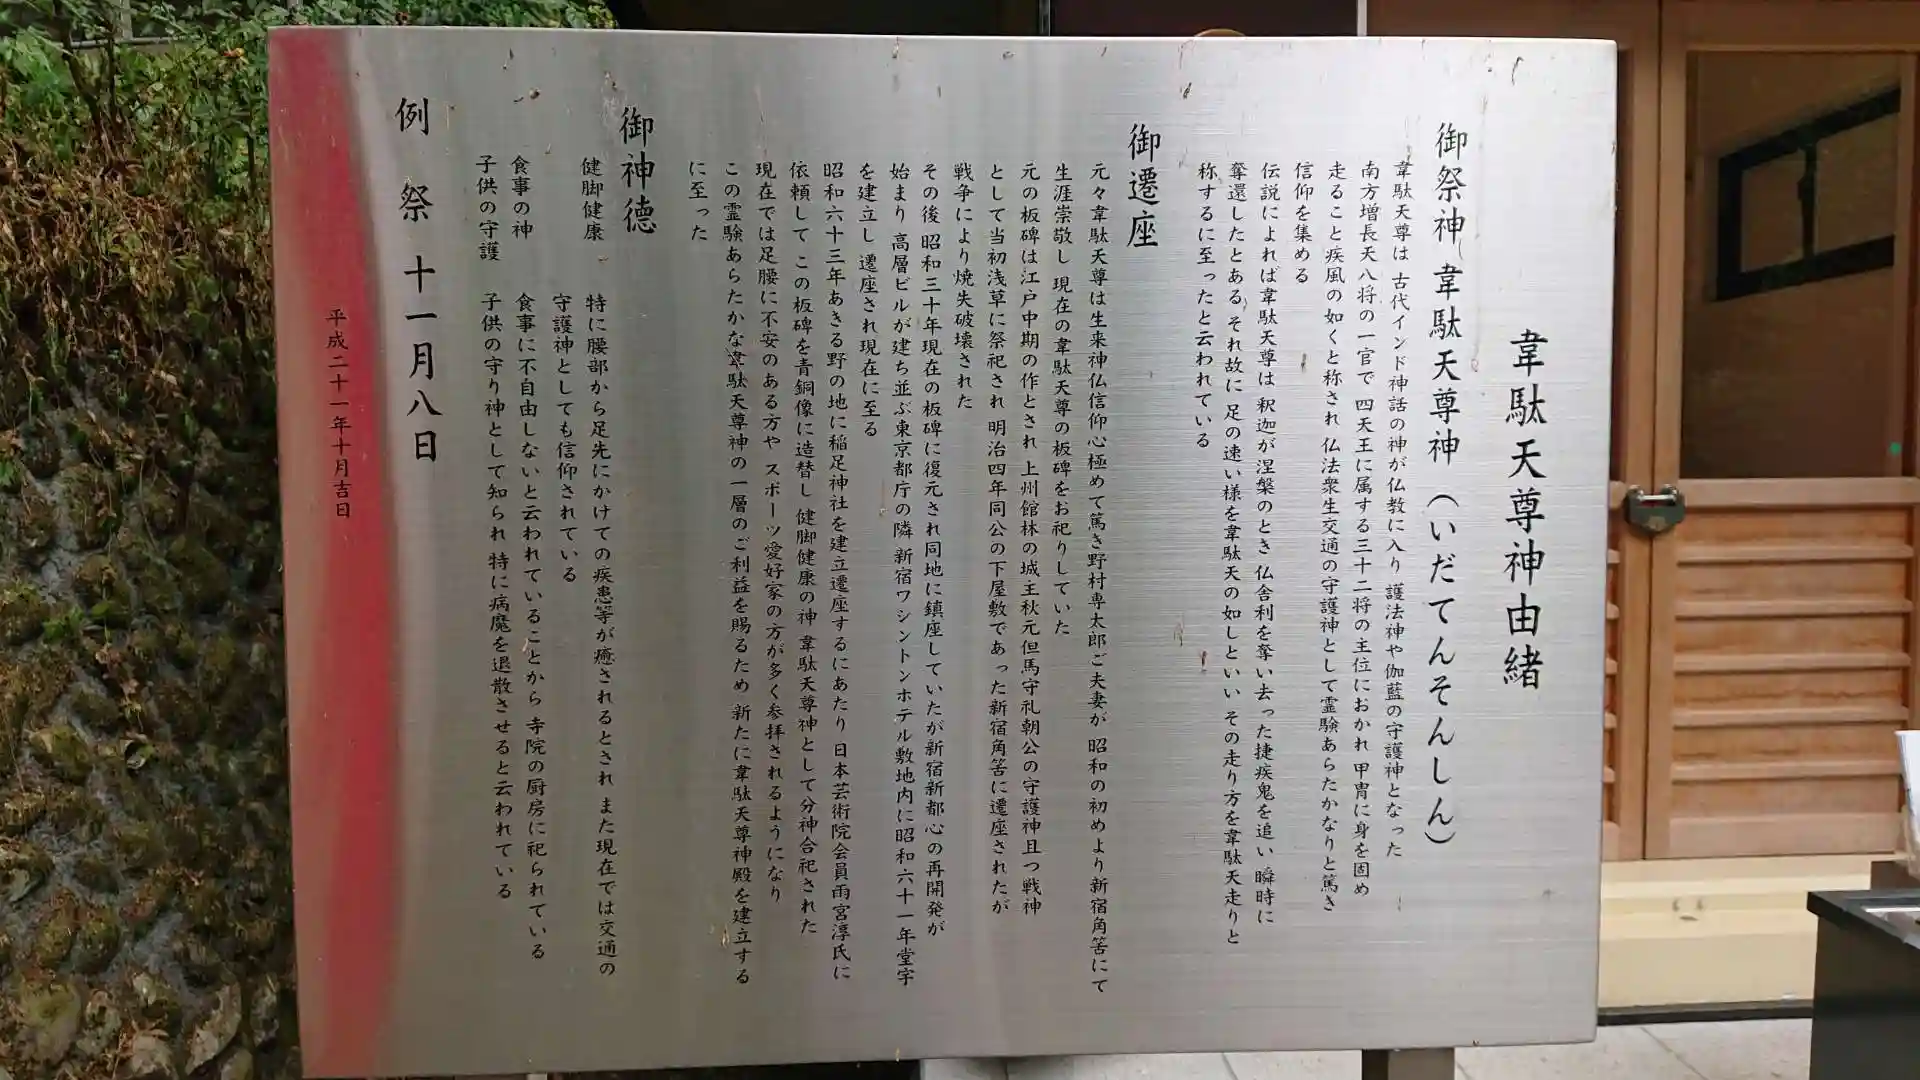 韋駄天尊神由緒
御祭神 韋駄天尊神(いだてんそんしん)
韋駄天尊は 古代インド神話の神が仏教に入り 護法神や伽藍の守護神となった
南方増長天八将の一官で 四天王に属する三十二将の主位におかれ 甲冑に身を固め
走ること疾風の如くと称され 仏法衆生交通の守護神として霊験あらたかなりと篤き
信仰を集める
伝説によれば韋駄天尊は 釈迦が涅槃のとき 仏舎利を奪い去った捷疾鬼を追い 瞬時に
奪還したとある それ故に 足の速い様を韋駄天の如しといい その走り方を韋駄天走りと
称するに至ったと云われている
御遷座
元々韋駄天尊は生来神仏信仰心極めて篤き野村専太郎ご夫妻が 昭和の初めより新宿角筈にて
生涯崇敬し 現在の韋駄天尊の板碑をお祀りしていた
元の板碑は江戸中期の作とされ 上州館林の城主秋元但馬守礼朝公の守護神且つ戦神
として当初浅草に祭祀され 明治四年同公の下屋敷であった新宿角筈に遷座されたが
戦争により焼失破壊された
その後 昭和三十年現在の板碑に復元され同地に鎮座していたが新宿新都心の再開発が
始まり 高層ビルが建ち並ぶ東京都庁の隣 新宿ワシントンホテル敷地内に昭和六十一年堂宇
を建立し 遷座され現在に至る
昭和六十三年あきる野の地に稲足神社を建立遷座するにあたり 日本芸術院会員雨宮淳氏に
依頼して この板碑を青銅像に造替し 健脚健康の神 韋駄天尊神として分神合祀された
現在では足腰に不安のある方や スポーツ愛好家の方が多く参拝されるようになり
この霊験あらたかな韋駄天尊神の一層のご利益を賜るため 新たに韋駄天尊神殿を建立する
に至った
御神徳
健脚健康 特に腰部から足先にかけての疾患等が癒されるとされ また現在では交通の
守護神としても信仰されている
食事の神 食事に不自由しないと云われていることから 寺院の厨房に祀られている
子供の守護 子供の守り神として知られ 特に病魔を退散させると云われている
例 祭 十一月八日
平成二十一年十月吉日